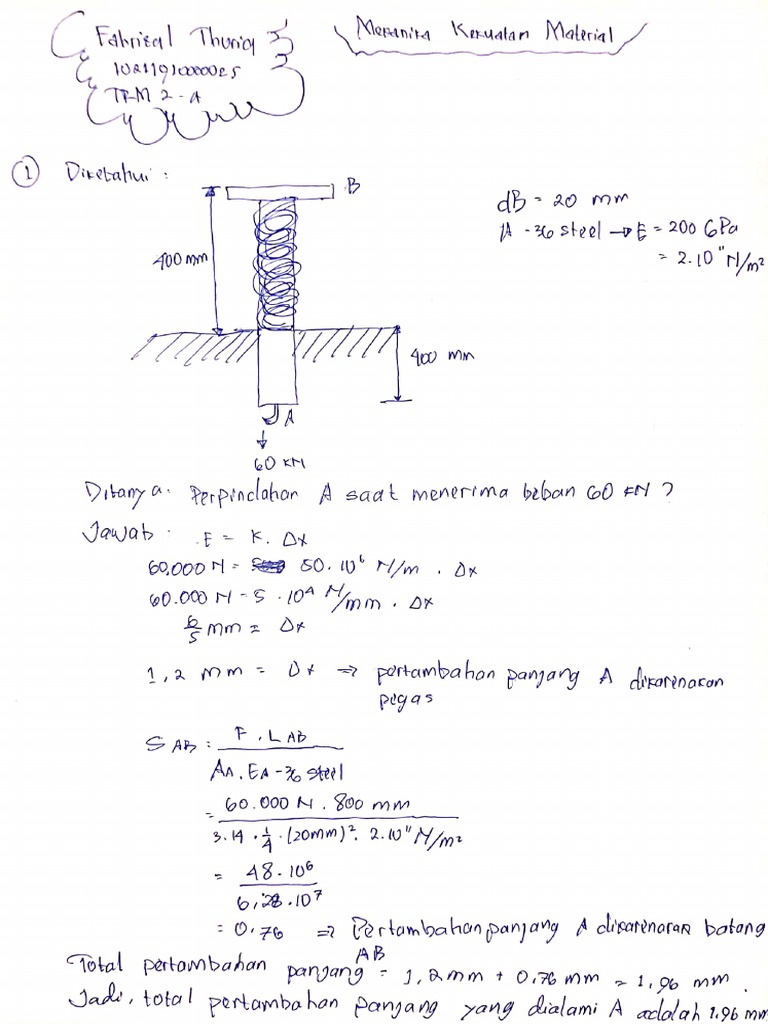 Fahrizal Thuriq
Mekanika Kekuatan Material
102119100000025
TRM 2-A
① Diketahui :
B
dB = 20 mm
A-36 steel → E = 200 GPa
= 2.10¹¹ N/m²
400 mm
400 mm
A
60 KN
Ditanya: Perpindahan A saat menerima beban 60 KN ?
Jawab : F = K. Δx
60.000 N = 50.10⁶ N/m . Δx
60.000 N = 5 . 10⁴ N/mm . Δx
6/5 mm = Δx
1,2 mm = Δx ⇒ pertambahan panjang A dikarenakan
pegas
S AB = F . L AB / AA. EA-36 steel
= 60.000 N . 800 mm / 3.14 . 1/4 . (20mm)². 2.10¹¹ N/m²
= 48.10⁶ / 6,28.10⁷
= 0,76 ⇒ Pertambahan panjang A dikarenakan batang
AB
Total pertambahan panjang = 1,2 mm + 0,76 mm = 1,96 mm .
Jadi, total pertambahan panjang yang dialami A adalah 1,96 mm